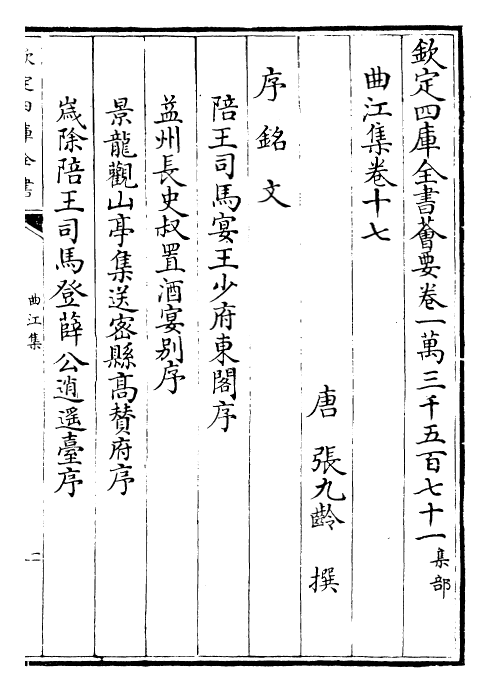 欽定四庫全書薈要卷一萬三千五百七十一集部
曲江集卷十七
唐 張九齡 撰
序 銘 文
陪王司馬宴王少府東閣序
益州長史叔置酒宴別序
景龍觀山亭集送密縣高贊府序
嵗除陪王司馬登薛公逍遥臺序
欽定四庫全書
曲江集